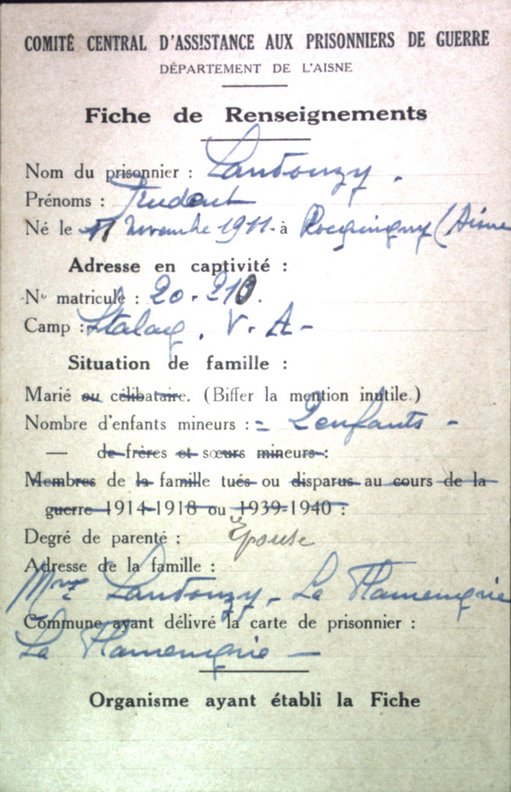 COMITÉ CENTRAL D'ASSISTANCE AUX PRISONNIERS DE GUERRE
DÉPARTEMENT DE L'AISNE
Fiche de Renseignements
Nom du prisonnier : Landouzy.
Prénoms : Prudent
Né le 11 novembre 1911 à Rocquigny (Aisne
Adresse en captivité :
No matricule : 20-210.
Camp : Stalag. V. A-
Situation de famille :
Marié ou célibataire. (Biffer la mention inutile.)
Nombre d'enfants mineurs : = 2 enfants -
— de frères et sœurs mineurs :
Membres de la famille tués ou disparus au cours de la
guerre 1914-1918 ou 1939-1940 :
Degré de parenté : Epouse
Adresse de la famille :
Mme Landouzy - La Flamengrie
Commune ayant délivré la carte de prisonnier :
La Flamengrie -
Organisme ayant établi la Fiche